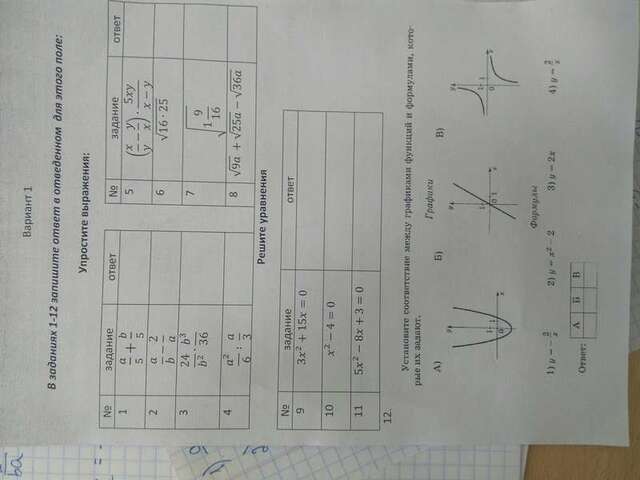 Вариант 1
В заданиях 1-12 запишите ответ в отведенном для этого поле:
Упростите выражения:
№ задание ответ
1 a/5 + b/5
2 a/b − 2/a
3 24/b² · b³/36
4 a²/6 : a/3
№ задание ответ
5 (x/y − y/x) · 5xy/(x − y)
6 √(16 · 25)
7 √(1 9/16)
8 √9a + √25a − √36a
Решите уравнения
№ задание ответ
9 3x² + 15x = 0
10 x² − 4 = 0
11 5x² − 8x + 3 = 0
12.
Установите соответствие между графиками функций и формулами, кото-
рые их задают.
Графики
А) Б) В)
y 1 0 1 x
y 1 0 1 x
y 1 0 1 x
Формулы
1) y = −2/x 2) y = x² − 2 3) y = 2x 4) y = 2/x
Ответ:
А Б В